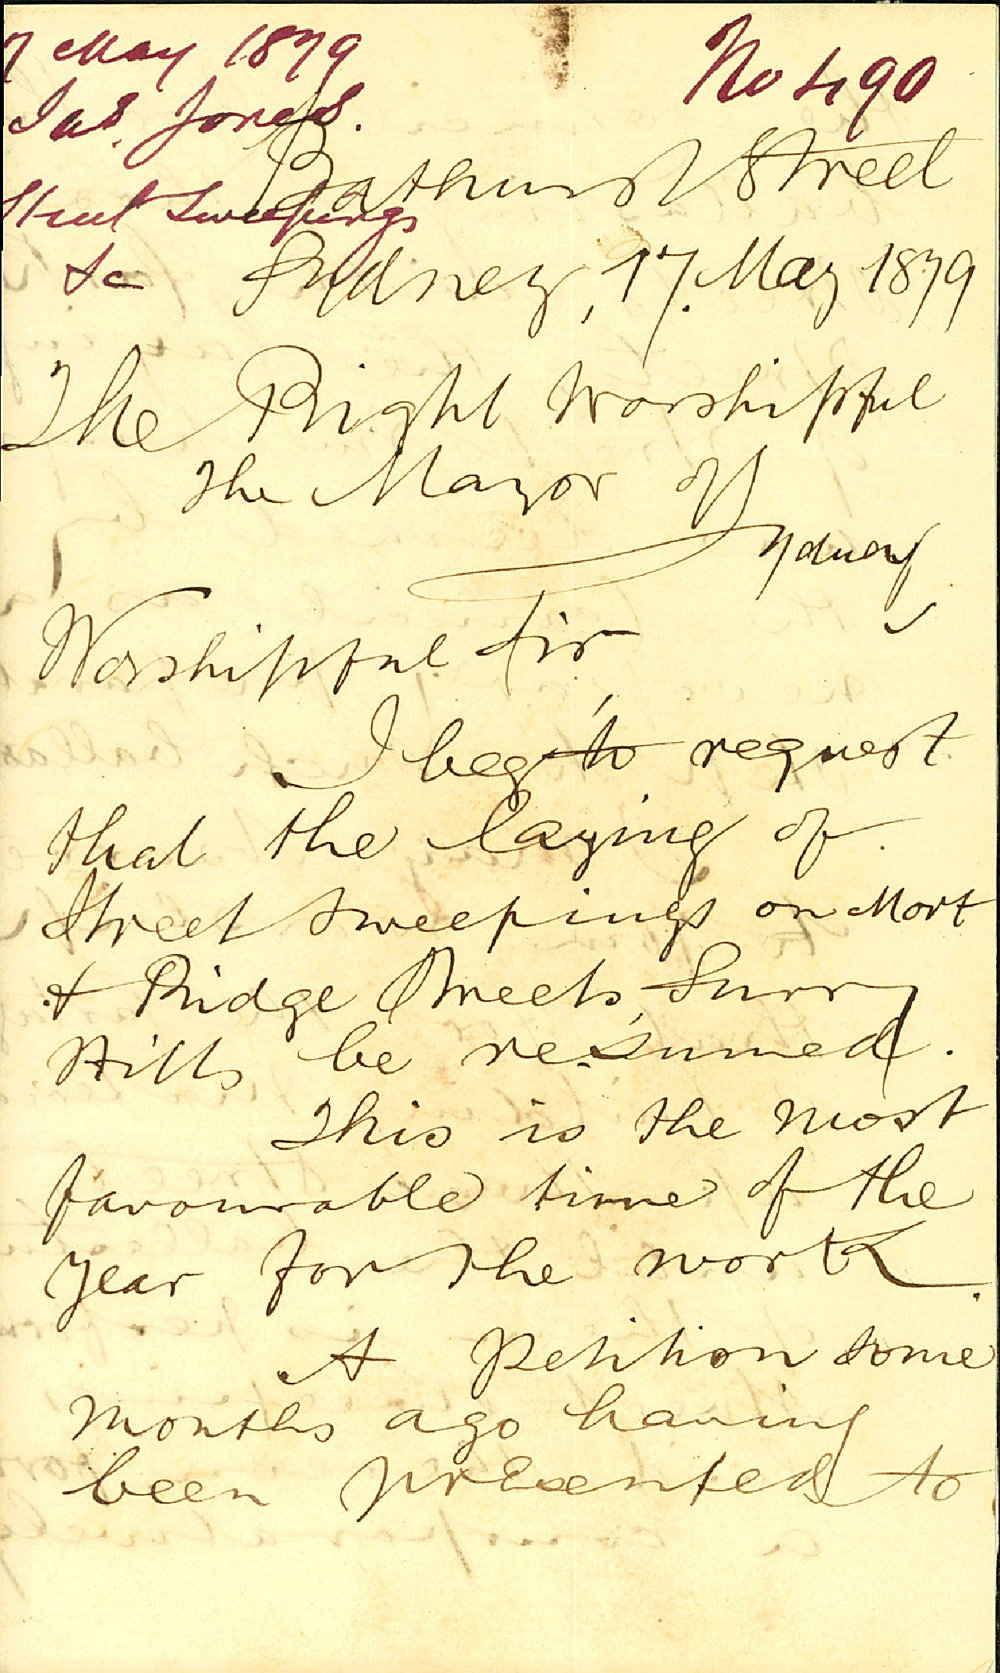 7 May 1879
No 490
Jas. Jones.
Bathurst Street
Street Sweepings
&c
Sydney, 17. May 1879
The Right Worshipful
the Mayor of
Sydney
Worshipful Sir
I beg to request
that the laying of
Street Sweepings on Mort
& Ridge Streets, Surry
Hills be resumed.
This is the most
favourable time of the
year for the work.
A petition some
months ago having
been presented to